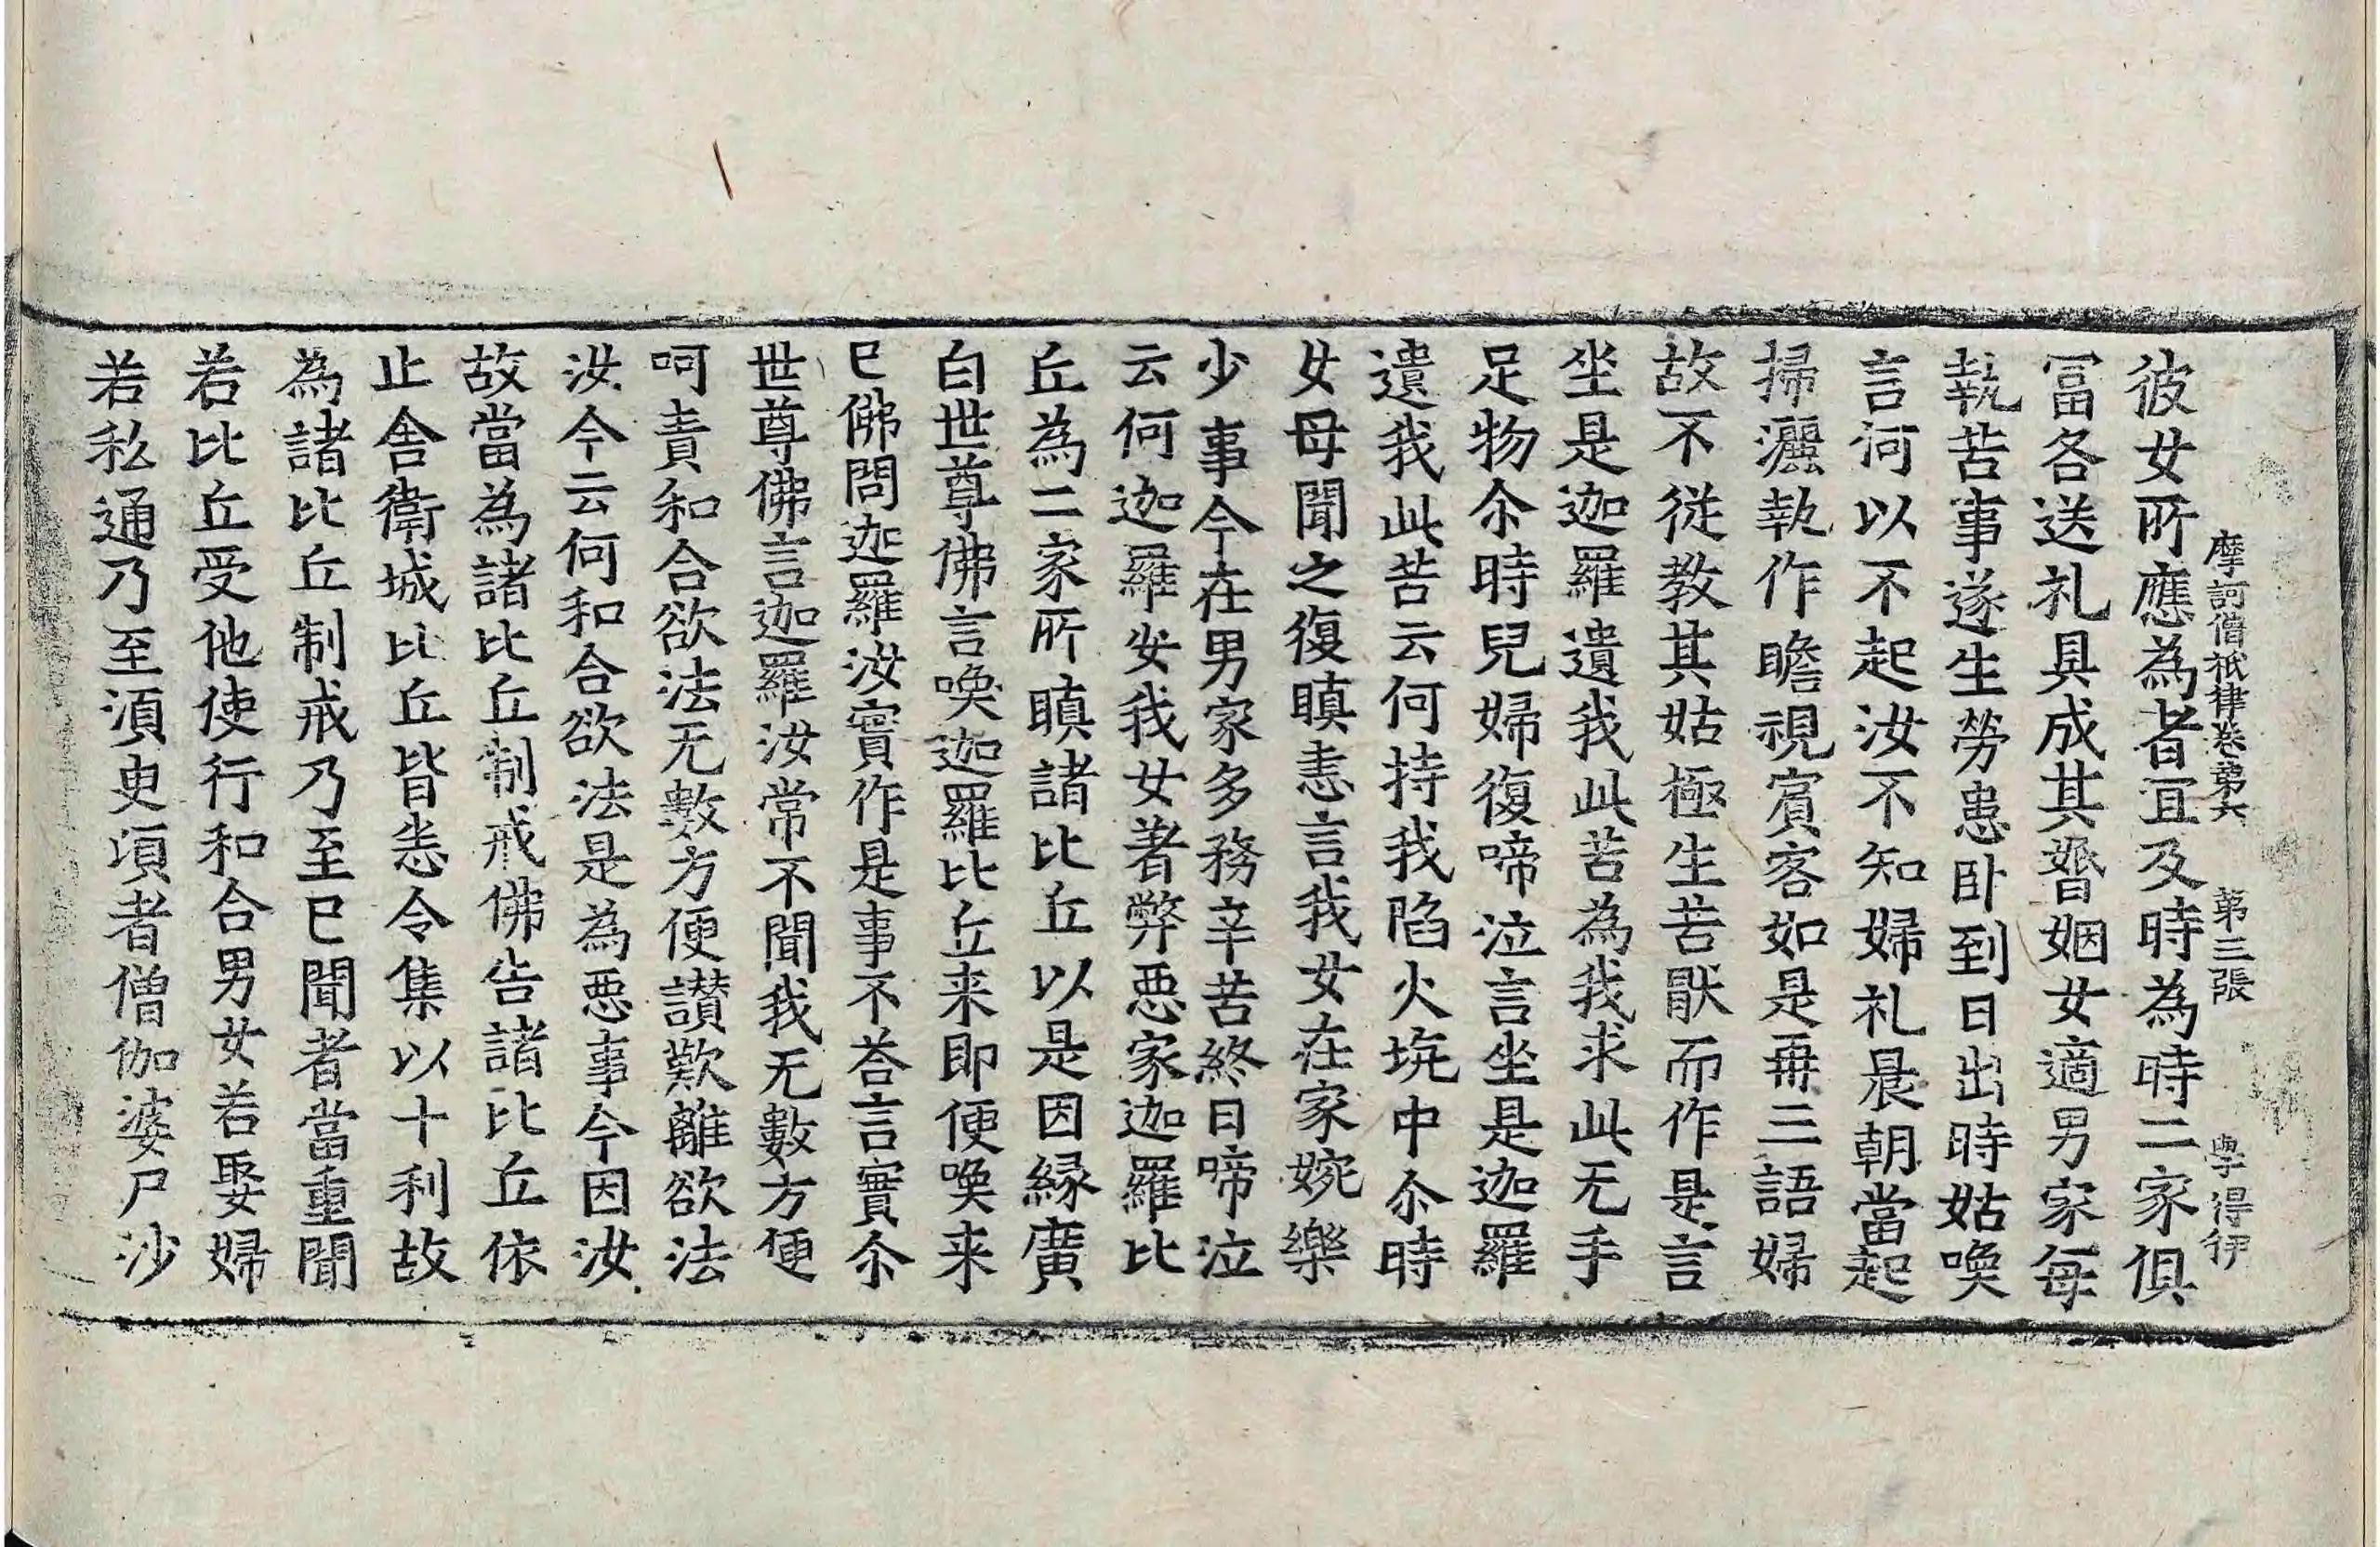 摩訶僧祇律卷第六 第三張 學得行
彼女所應為者宜及時為時二家俱
冨各送礼具成其㛰姻女適男家每
執苦事遂生勞患卧到日出時姑喚
言何以不起汝不知婦礼晨朝當起
掃灑執作瞻視賔客如是再三語婦
故不從教其姑極生苦猒而作是言
坐是迦羅遺我此苦為我求此无手
足物尒時兒婦復啼泣言坐是迦羅
遺我此苦云何持我陷火坑中尒時
女母聞之復瞋恚言我女在家婉樂
少事今在男家多務辛苦終日啼泣
云何迦羅安我女著弊惡家迦羅比
丘為二家所瞋諸比丘以是因縁廣
白世尊佛言喚迦羅比丘来即便喚来
已佛問迦羅汝實作是事不荅言實尒
世尊佛言迦羅汝常不聞我无數方便
呵責和合欲法无數方便讃歎離欲法
汝今云何和合欲法是為惡事今因汝
故當為諸比丘制戒佛告諸比丘依
止舍衛城比丘皆悉令集以十利故
為諸比丘制戒乃至已聞者當重聞
若比丘受他使行和合男女若娶婦
若私通乃至湏臾頃者僧伽婆尸沙